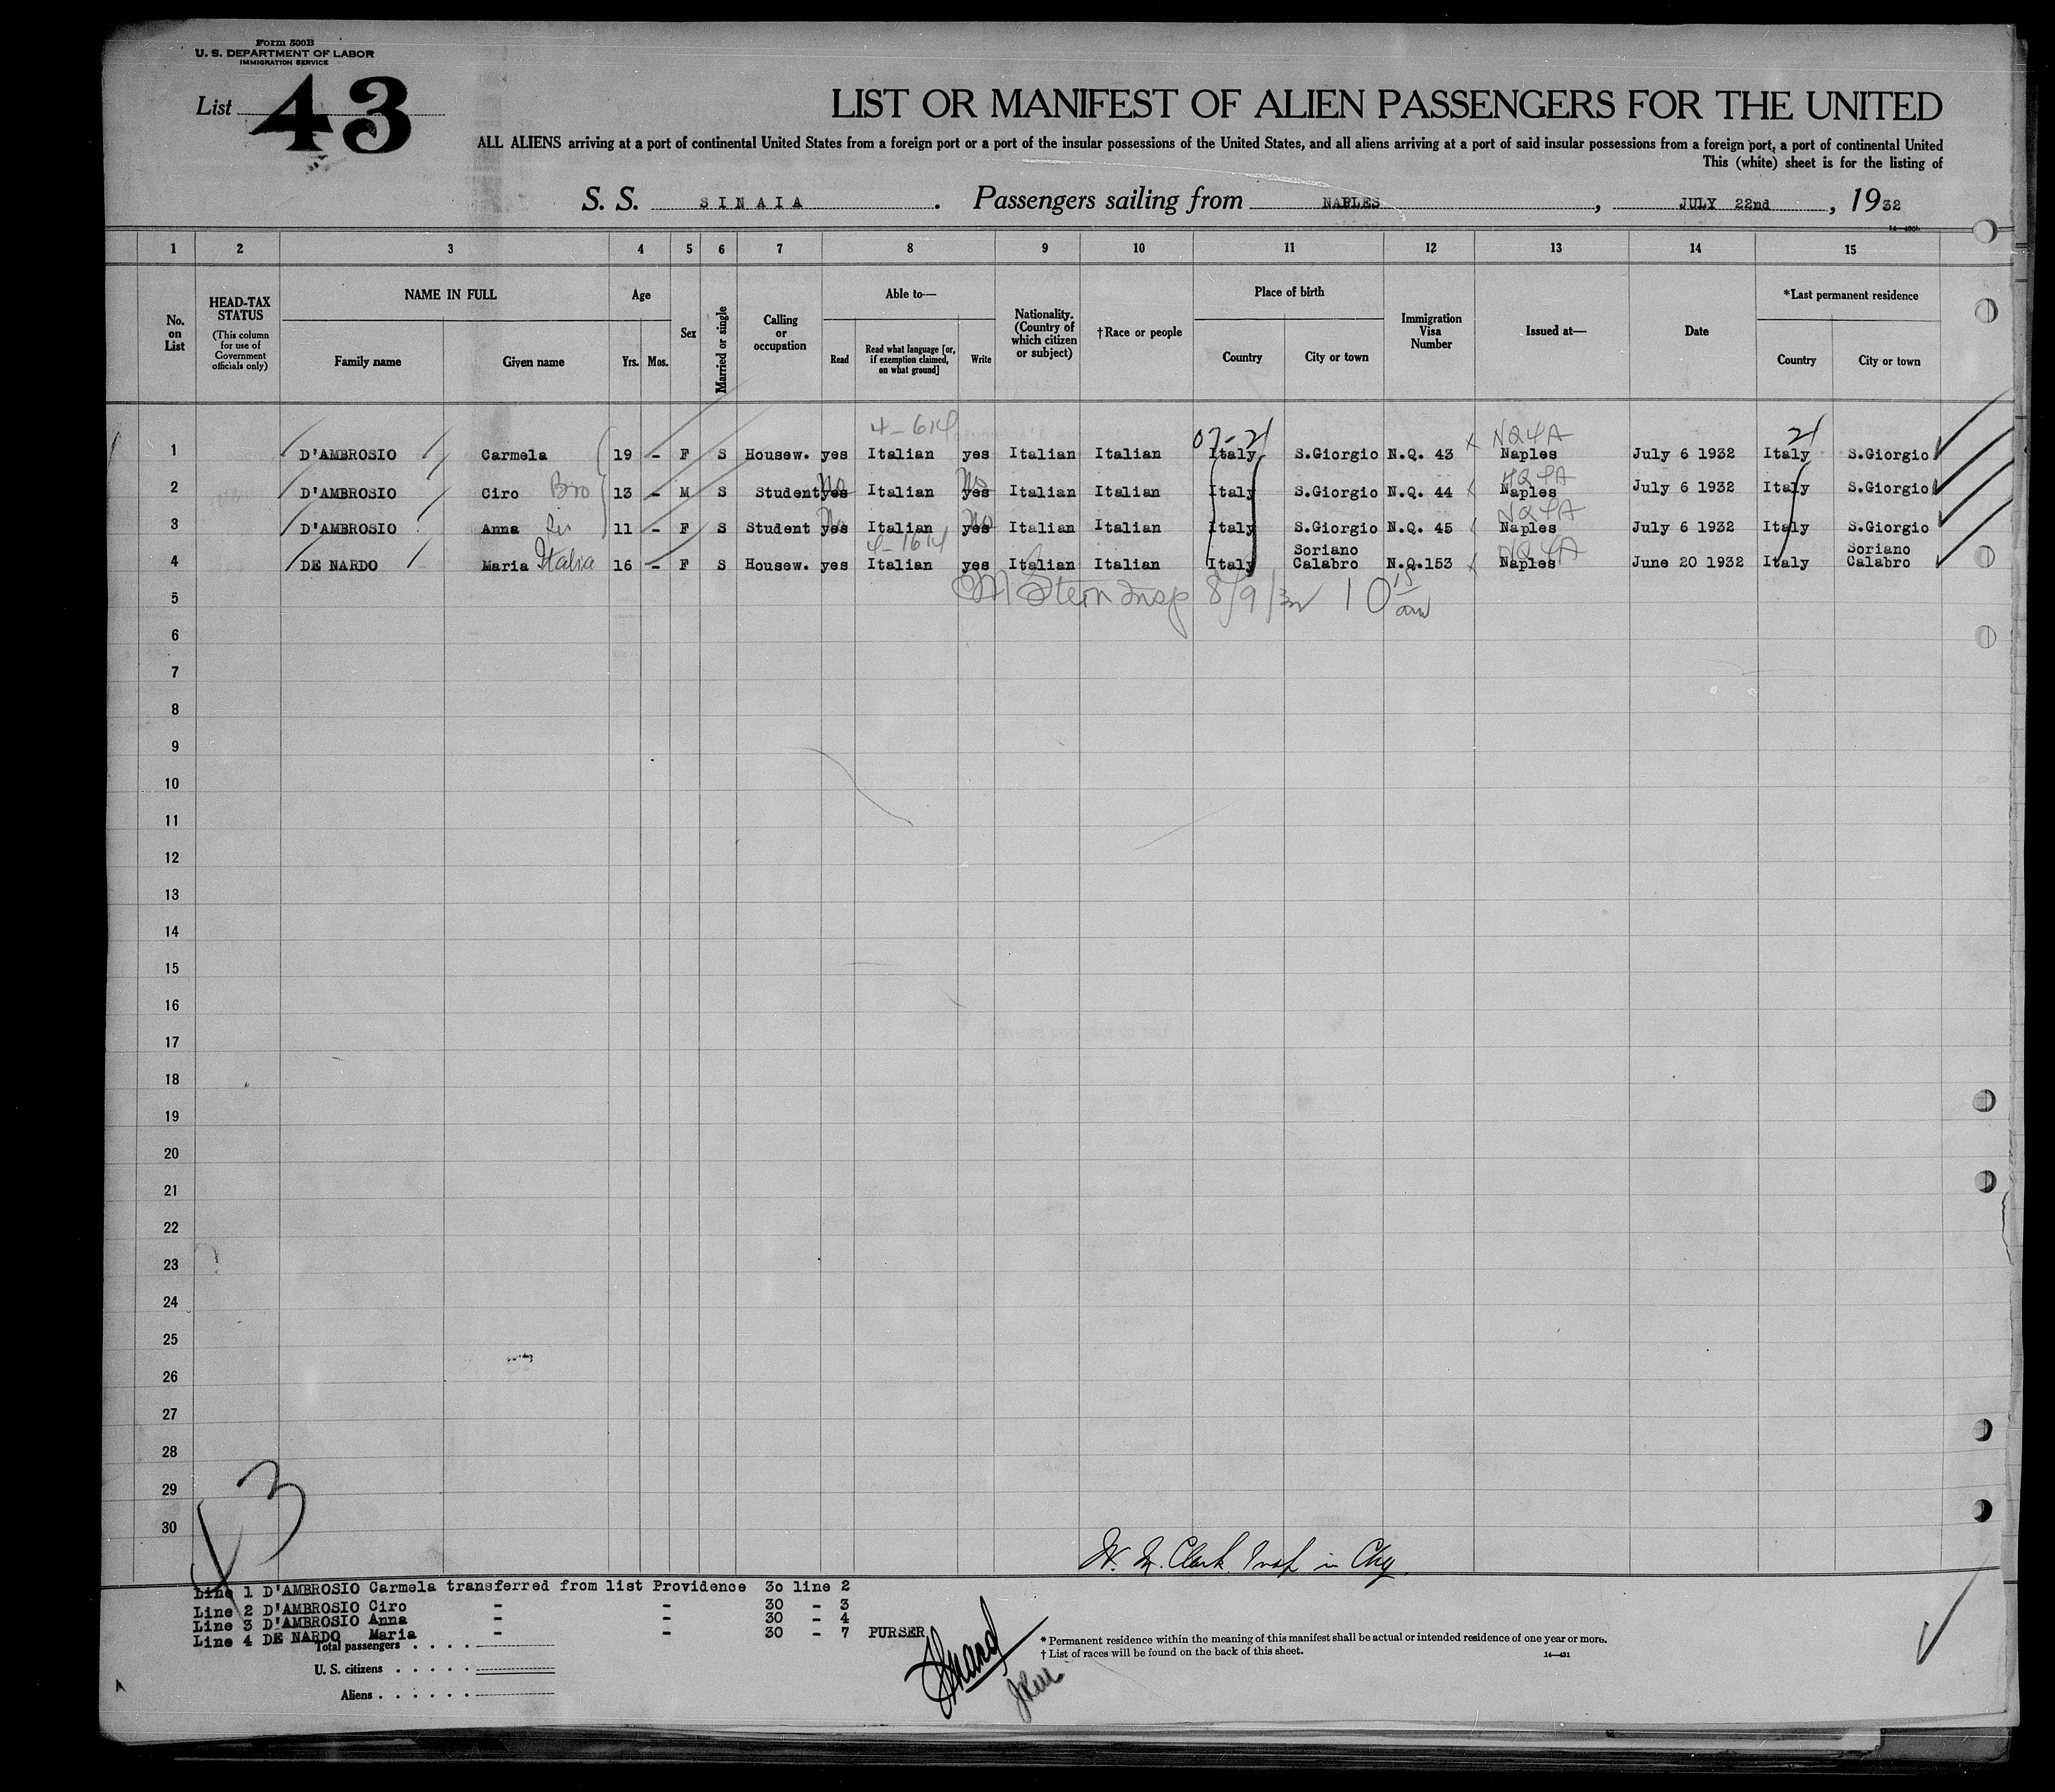 Form 500B
U. S. DEPARTMENT OF LABOR
IMMIGRATION SERVICE
List 43
LIST OR MANIFEST OF ALIEN PASSENGERS FOR THE UNITED
ALL ALIENS arriving at a port of continental United States from a foreign port or a port of the insular possessions of the United States, and all aliens arriving at a port of said insular possessions from a foreign port, a port of continental United
This (white) sheet is for the listing of
S. S. SINAIA. Passengers sailing from NAPLES, JULY 22nd, 1932
1 2 3 4 5 6 7 8 9 10 11 12 13 14 15
No. on List
HEAD-TAX STATUS (This column for use of Government officials only)
NAME IN FULL Family name Given name
Age Yrs. Mos.
Sex
Married or single
Calling or occupation
Able to— Read Read what language [or, if exemption claimed, on what ground] Write
Nationality. (Country of which citizen or subject)
†Race or people
Place of birth Country City or town
Immigration Visa Number
Issued at—
Date
*Last permanent residence Country City or town
4-614 07-21 NQ4A 21
1 D'AMBROSIO Carmela 19 - F S Housew. yes Italian yes Italian Italian Italy S.Giorgio N.Q. 43 Naples July 6 1932 Italy S.Giorgio
No No NQ4A
2 D'AMBROSIO Ciro Bro 13 - M S Student yes Italian yes Italian Italian Italy S.Giorgio N.Q. 44 Naples July 6 1932 Italy S.Giorgio
No No NQ4A
3 D'AMBROSIO Anna Sis 11 - F S Student yes Italian yes Italian Italian Italy S.Giorgio N.Q. 45 Naples July 6 1932 Italy S.Giorgio
4-1614 NQ4A
4 DE NARDO Maria Italia 16 - F S Housew. yes Italian yes Italian Italian Italy Soriano Calabro N.Q.153 Naples June 20 1932 Italy Soriano Calabro
5 Stern Insp 8/9/32 10 15 am
6
7
8
9
10
11
12
13
14
15
16
17
18
19
20
21
22
23
24
25
26
27
28
29
30
3
Clark. Insp in Chg.
Line 1 D'AMBROSIO Carmela transferred from list Providence 30 line 2
Line 2 D'AMBROSIO Ciro - - 30 - 3
Line 3 D'AMBROSIO Anna - - 30 - 4
Line 4 DE NARDO Maria - - 30 - 7 PURSER
Total passengers . . . .
U. S. citizens . . . . .
Aliens . . . . . .
* Permanent residence within the meaning of this manifest shall be actual or intended residence of one year or more.
† List of races will be found on the back of this sheet.
14—431